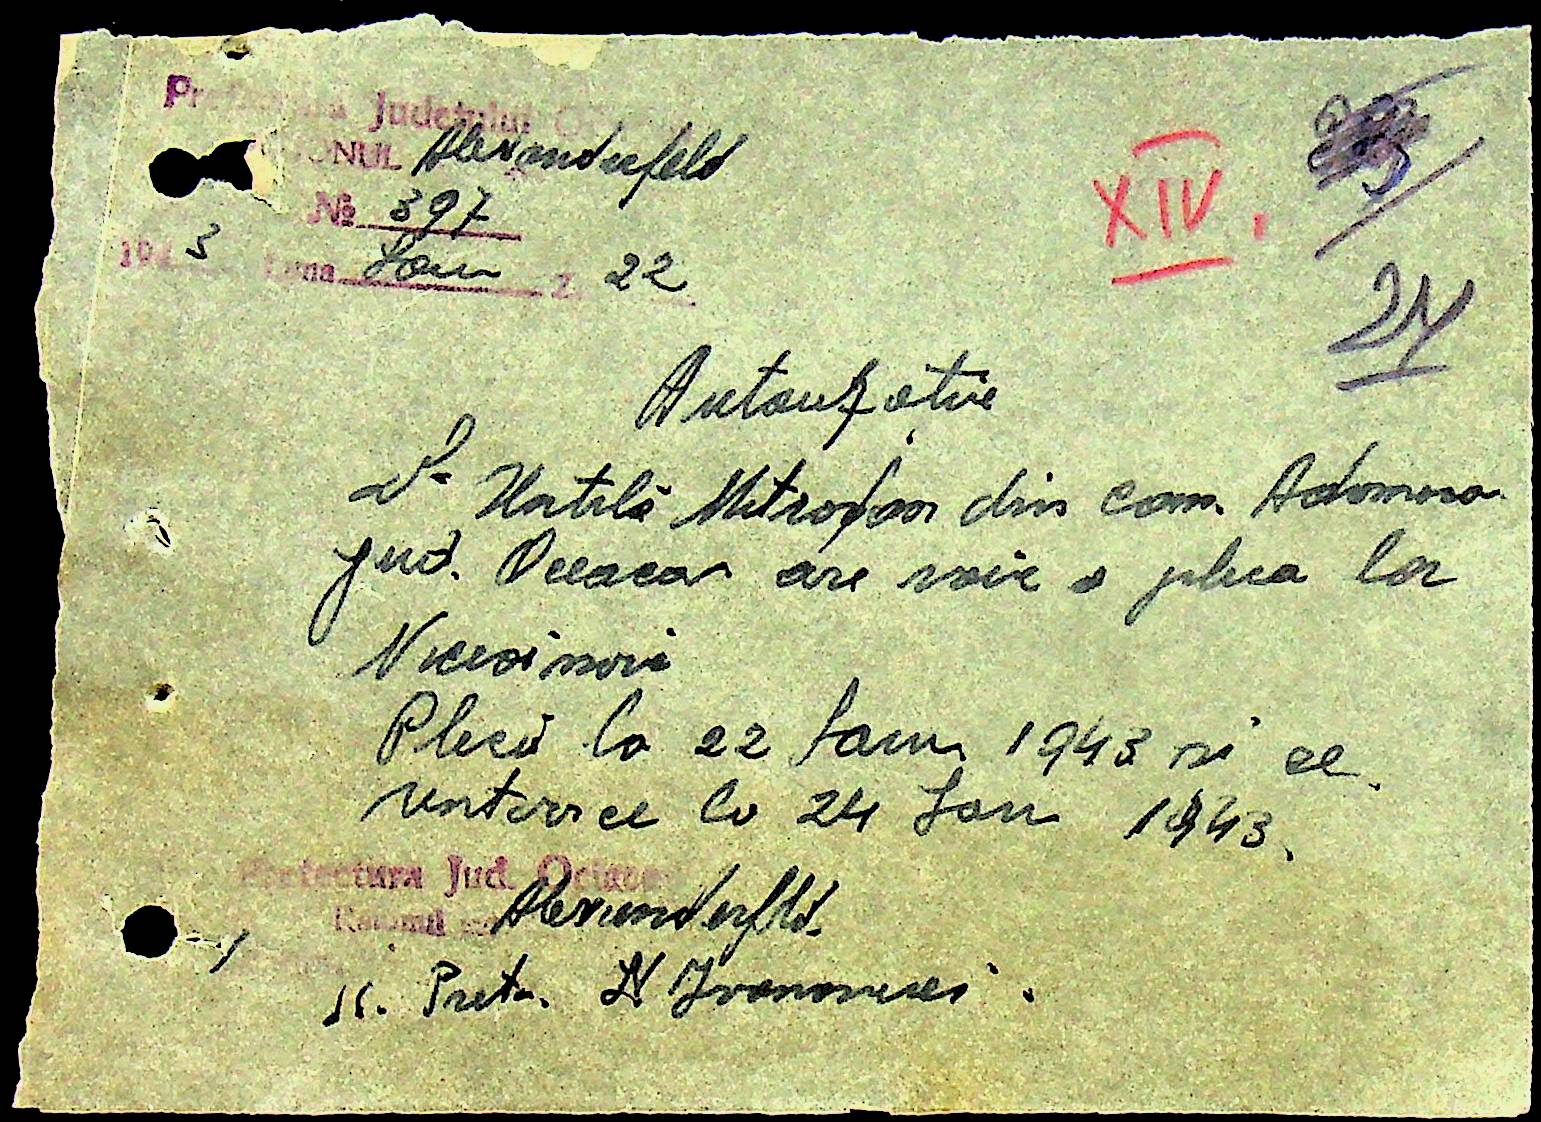 Prefectura Județului
Alexanderfeld
XIV.
№ 397
194 3 Luna Ian Z. 22
24
Autorizatie
D-l Mitrofan din com. Adamova
jud. Oceacov are voie a pleca la
Plecă la 22 Ian. 1943 si se
intoarce la 24 Ian 1943.
Prefectura Jud. Oceacov
Raionul Alexanderfeld.
p. Pretor